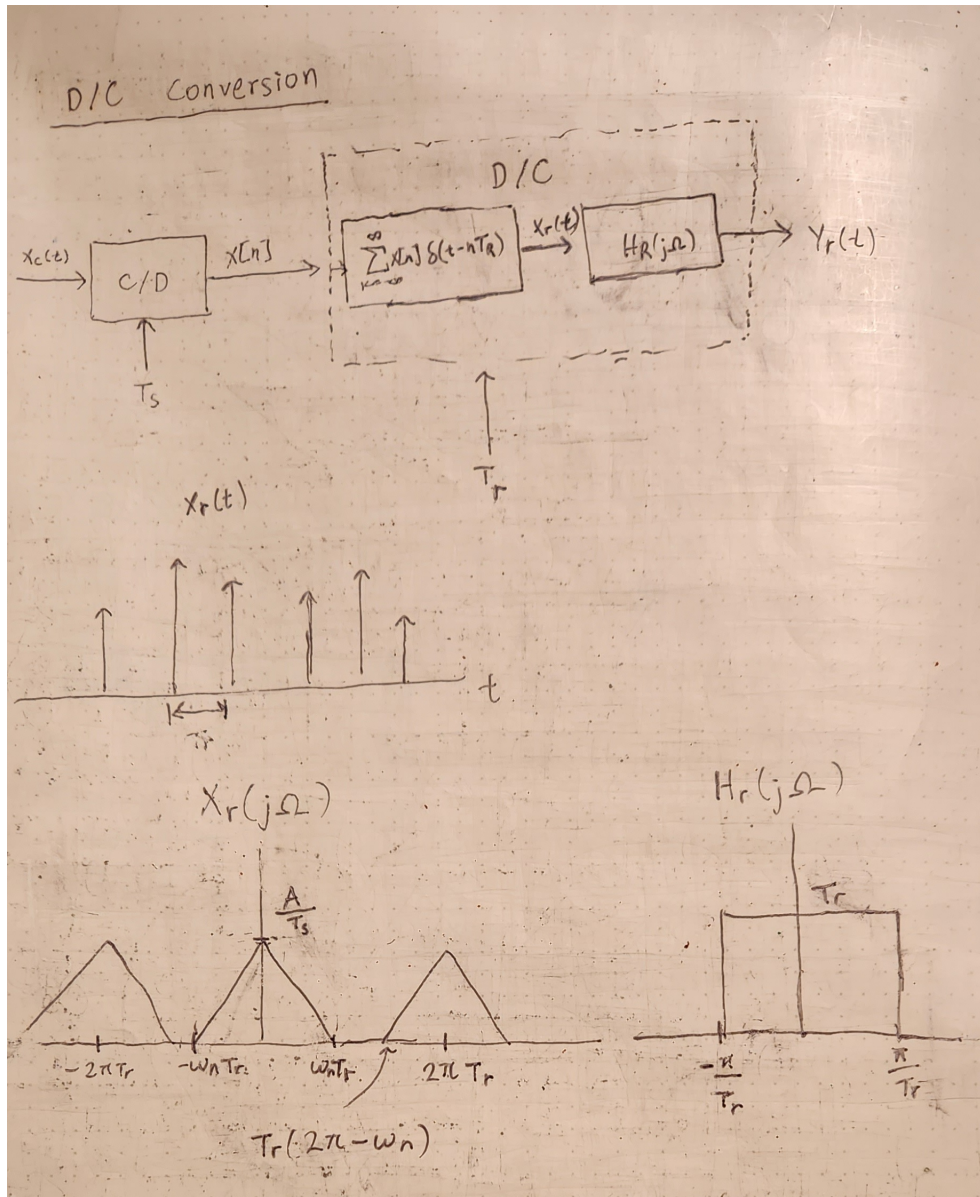 D/C Conversion
D/C
Xc(t)
C/D
X[n]
∞
∑ x[n] δ(t-nTR)
n=-∞
Xr(t)
HR(jΩ)
Yr(t)
Ts
Tr
Xr(t)
t
Tr
Xr(jΩ)
A
Ts
-2πTr
-ωnTr
ωnTr
2πTr
Tr(2π-ωn)
Hr(jΩ)
Tr
-π/Tr
π/Tr